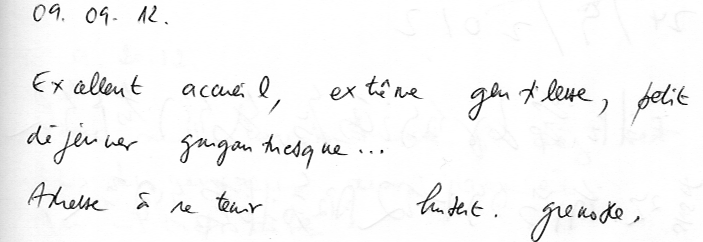 09. 09. 12.
Excellent accueil, extrême gentillesse, petit
déjeuner gargantuesque...
Adresse à retenir